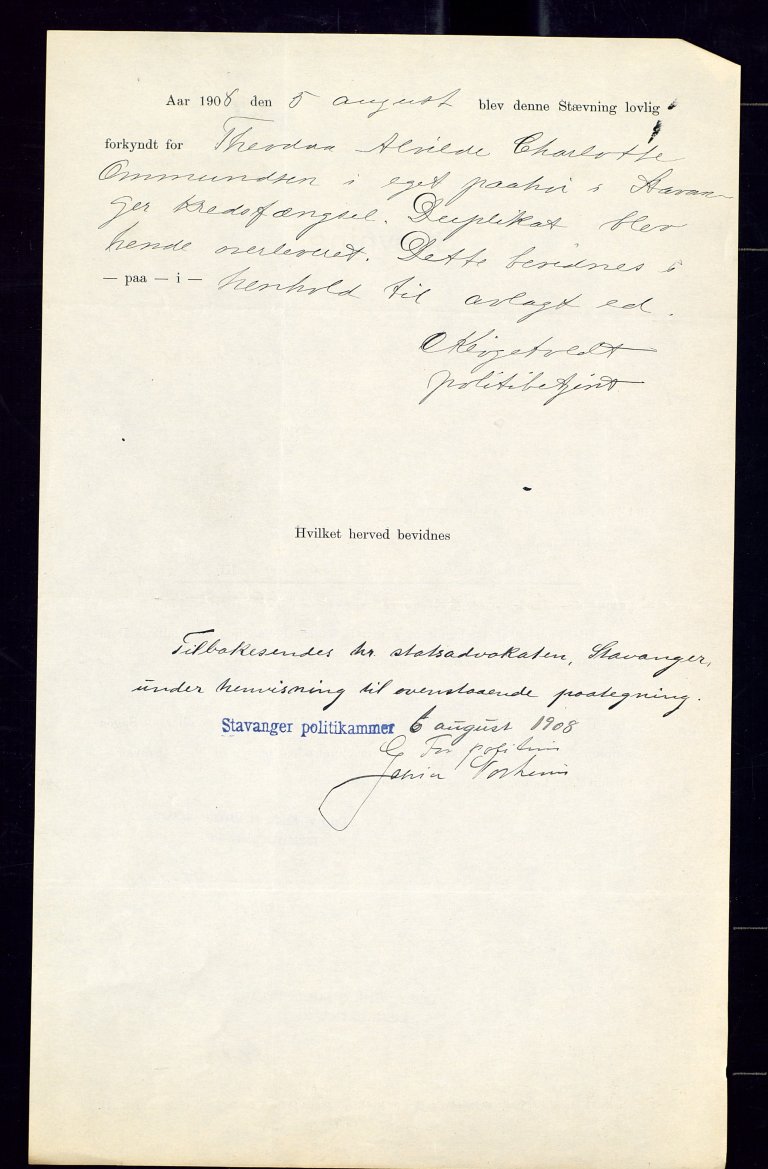 Aar 1908 den 5 august blev denne Stævning lovlig
forkyndt for Theodora Alvilde Charlotte
Ommundsen i eget paahør i Stavan-
ger kredsfængsel. Duplikat blev
hende overleveret. Dette bevidnes i
— paa — i — henhold til avlagt ed.
politibetjent
Hvilket herved bevidnes
Tilbakesendes hr. statsadvokaten, Stavanger,
under henvisning til ovenstaaende paategning.
Stavanger politikammer 6 august 1908
For politim